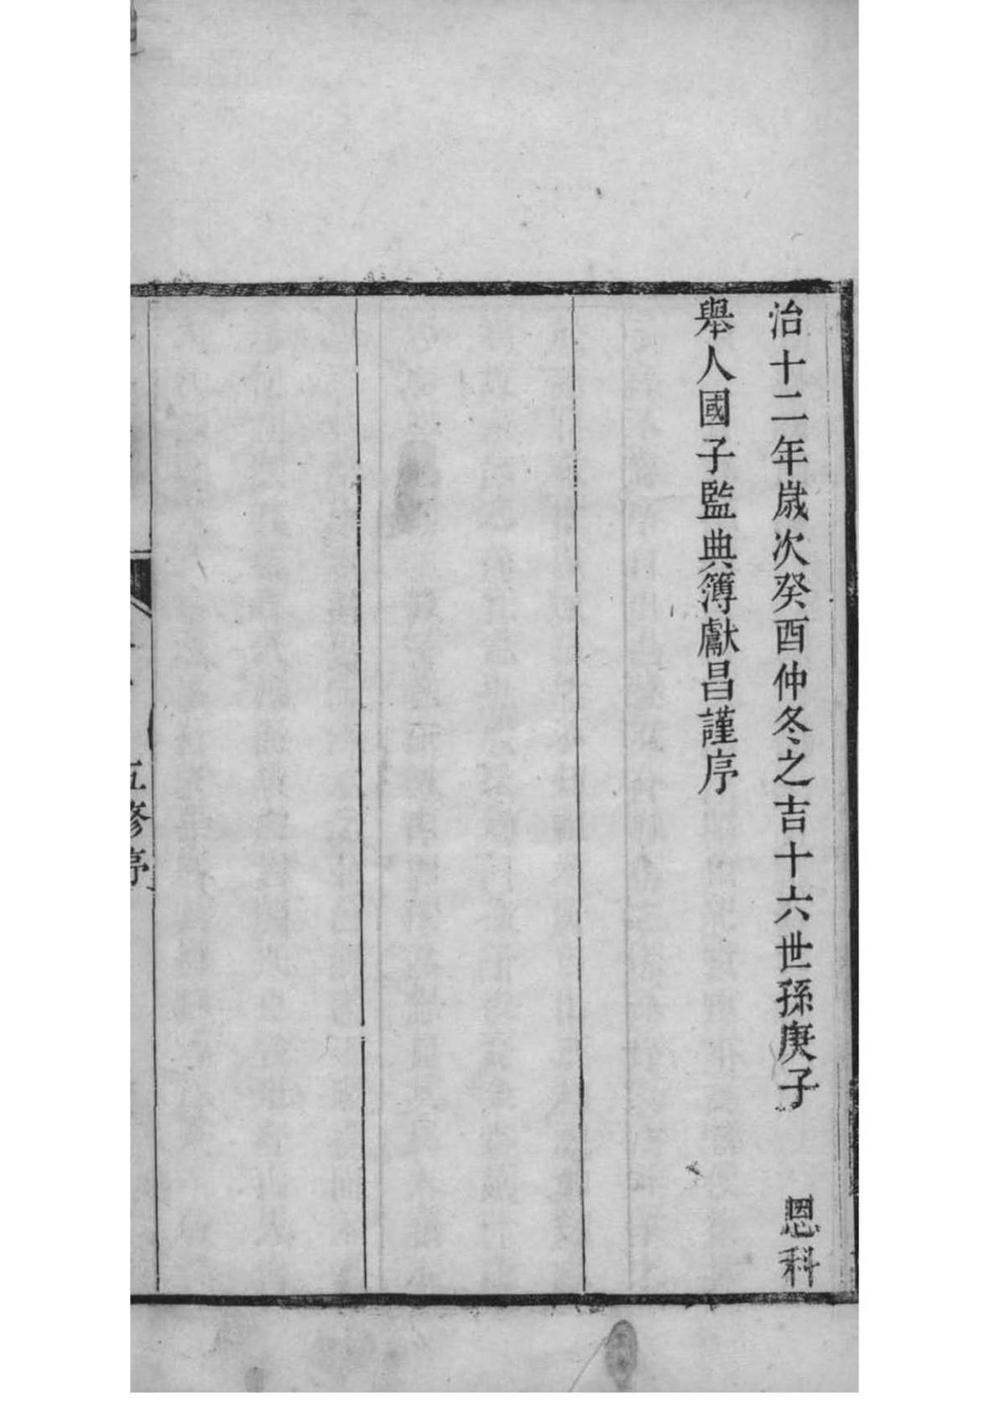 治十二年歲次癸酉仲冬之吉十六世孫庚子　恩科
舉人國子監典簿獻昌謹序
五修序